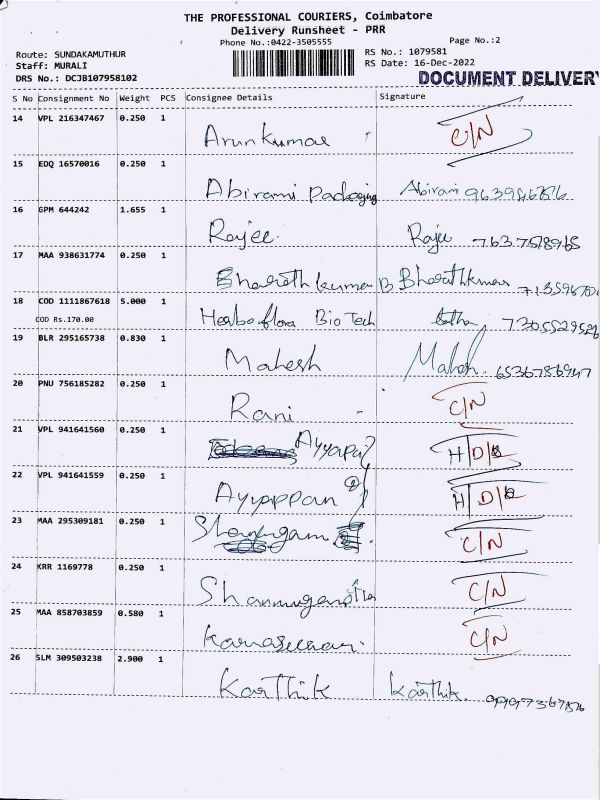 THE PROFESSIONAL COURIERS, Coimbatore
Delivery Runsheet - PRR
Phone No.:0422-3505555
Page No.:2
Route: SUNDAKAMUTHUR
Staff: MURALI
DRS No.: DCJB107958102
RS No.: 1079581
RS Date: 16-Dec-2022
DOCUMENT DELIVER
S No Consignment No Weight PCS Consignee Details Signature
14 VPL 216347467 0.250 1 Arunkumar C/N
15 EDQ 16570016 0.250 1 Abirami Abirami
16 GPM 644242 1.655 1 Rajee Rajee
17 MAA 938631774 0.250 1 Bharathkumar B Bharathkumar
18 COD 1111867618 5.000 1 Herbo flora Bio Tech
COD Rs.170.00
19 BLR 295165738 0.830 1 Mahesh Mahesh
20 PNU 756185282 0.250 1 Rani C/N
21 VPL 941641560 0.250 1 H/D
22 VPL 941641559 0.250 1 Ayyappan H/D
23 MAA 295309181 0.250 1 C/N
24 KRR 1169778 0.250 1 C/N
25 MAA 858703859 0.580 1 C/N
26 SLM 309503238 2.900 1 Karthik Karthik